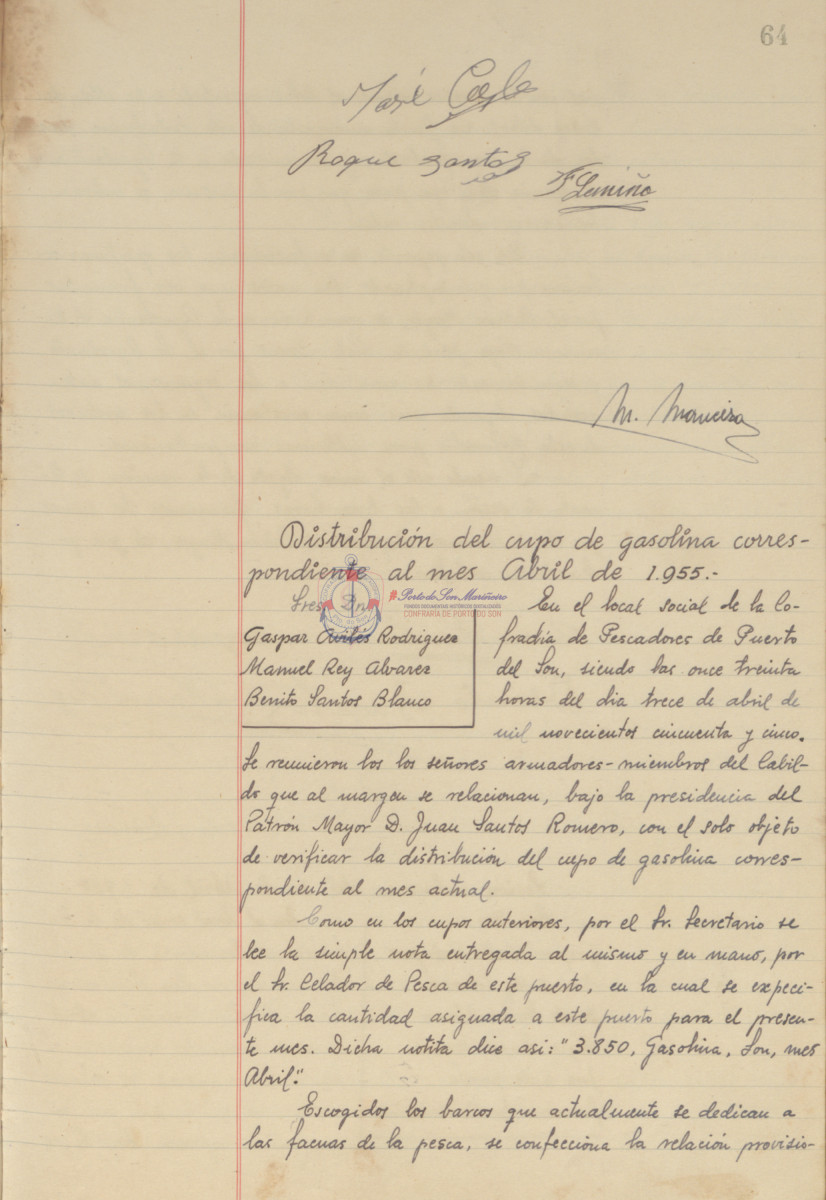 64
José
Roque Santos
M. Maneiro
Distribución del cupo de gasolina corres-
pondiente al mes Abril de 1.955.-
Sres. Dn.
Gaspar Avilés Rodriguez
Manuel Rey Alvarez
Benito Santos Blanco
Porto do Son Mariñeiro
FONDOS DOCUMENTAIS HISTÓRICOS DIXITALIZADOS
CONFRARÍA DE PORTO DO SON
En el local social de la Co-
fradía de Pescadores de Puerto
del Son, siendo las once treinta
horas del dia trece de abril de
mil novecientos cincuenta y cinco.
Se reunieron los los señores armadores-miembros del Cabil-
do que al margen se relacionan, bajo la presidencia del
Patrón Mayor D. Juan Santos Romero, con el solo objeto
de verificar la distribución del cupo de gasolina corres-
pondiente al mes actual.
Como en los cupos anteriores, por el Sr. Secretario se
lee la simple nota entregada al mismo y en mano, por
el Sr. Celador de Pesca de este puerto, en la cual se expeci-
fica la cantidad asignada a este puerto para el presen-
te mes. Dicha notita dice asi: "3.850, Gasolina, Son, mes
Abril."
Escogidos los barcos que actualmente se dedican a
las faenas de la pesca, se confecciona la relación provisio-